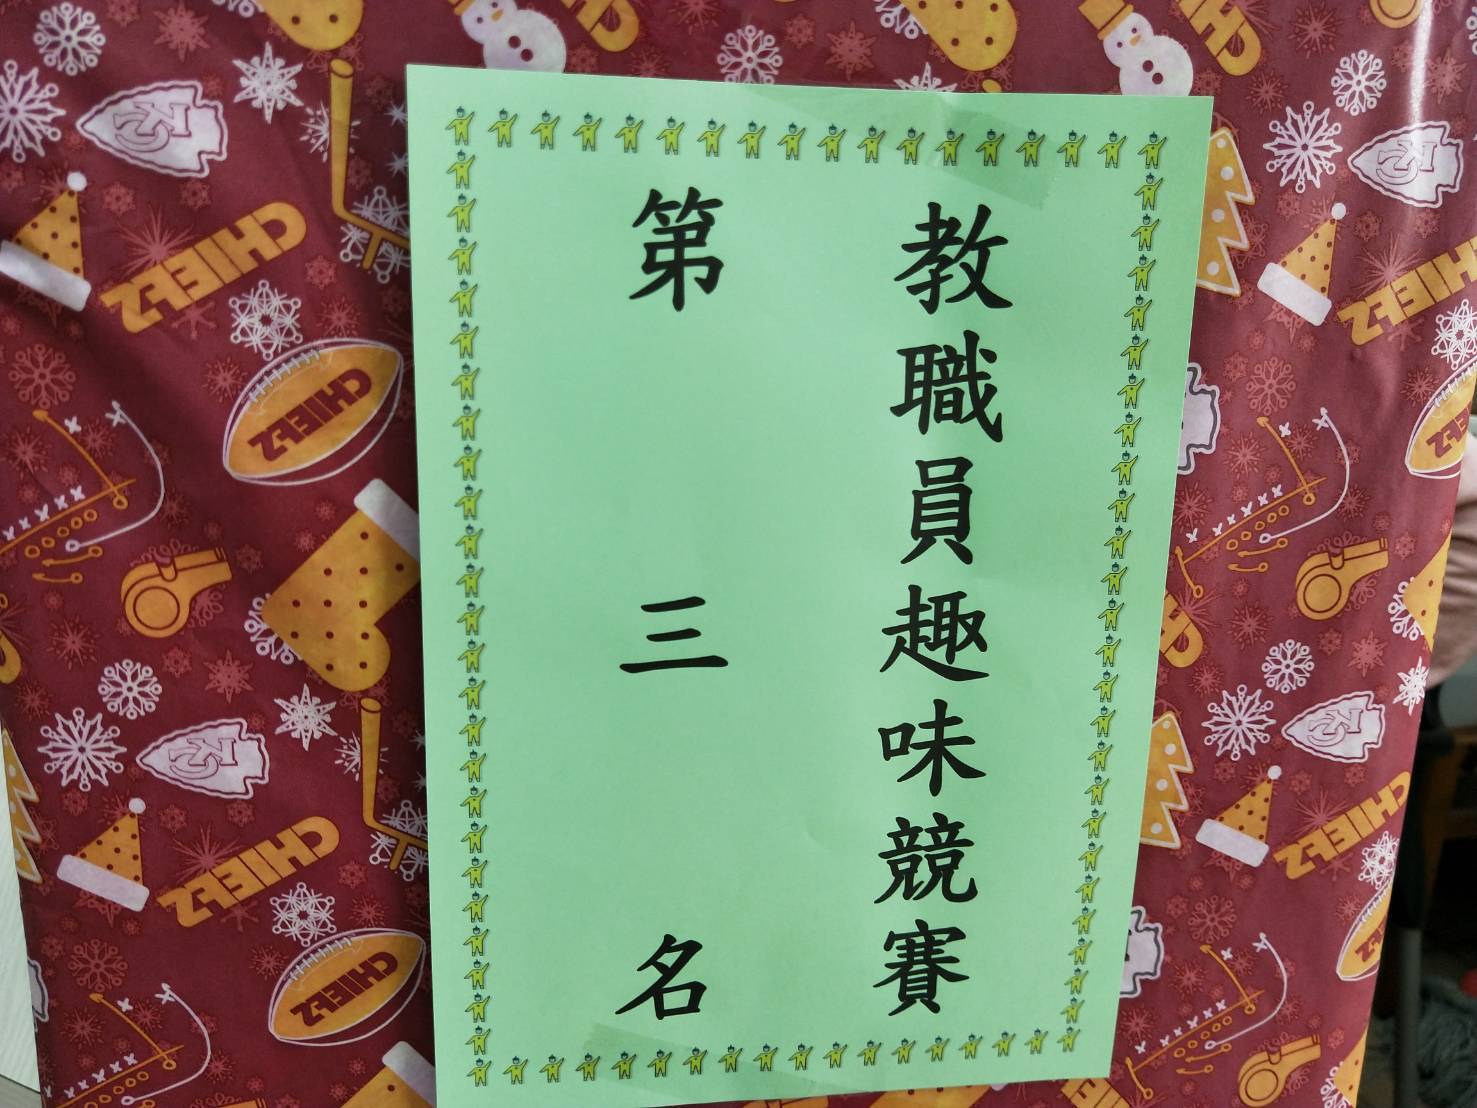 教職員趣味競賽
第三名
CHIEFS
CHIEFS
CHIEFS
CHIEFS
CHIEFS
CHIEFS
CHIEFS
KC
KC
KC
KC